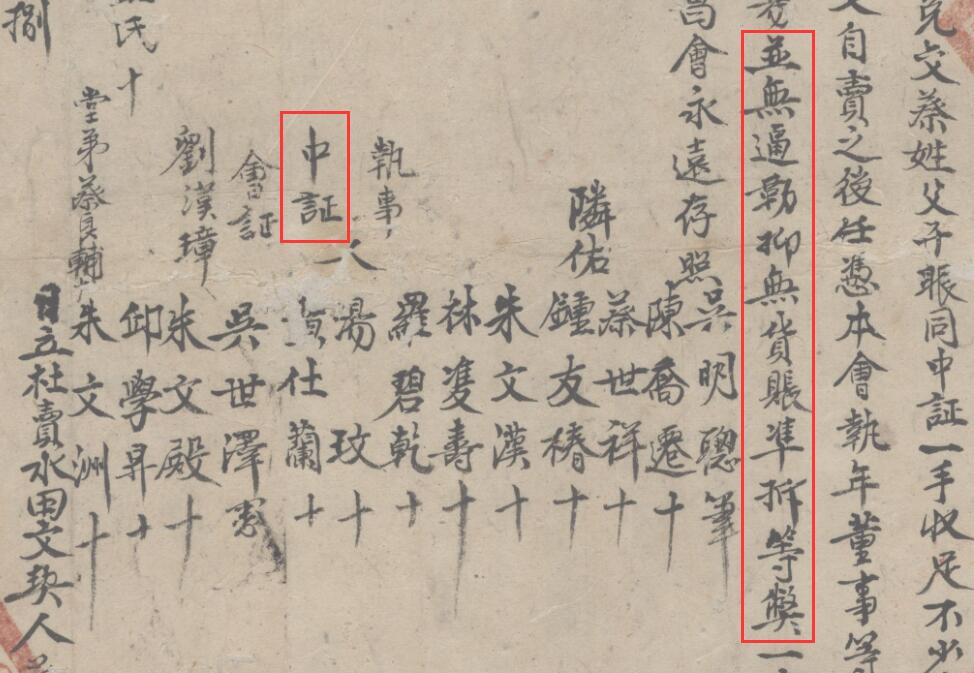 兑交蔡姓父子賬同中証一手收足不少
自賣之後任憑本會執年董事等
並無逼勒抑無貨賬準折等獘一
昌會永遠存照
吳明聰筆
陳喬遷十
隣佑
蔡世祥十
鍾友椿十
朱文漢十
林進壽十
羅碧乾十
執事
人
湯玟十
中証
仕蘭十
會証
吳世澤
劉漢璋
朱文殿十
邱學昇十
氏十
堂弟蔡良輔
朱文洲十
日立杜賣水田文契人
捌